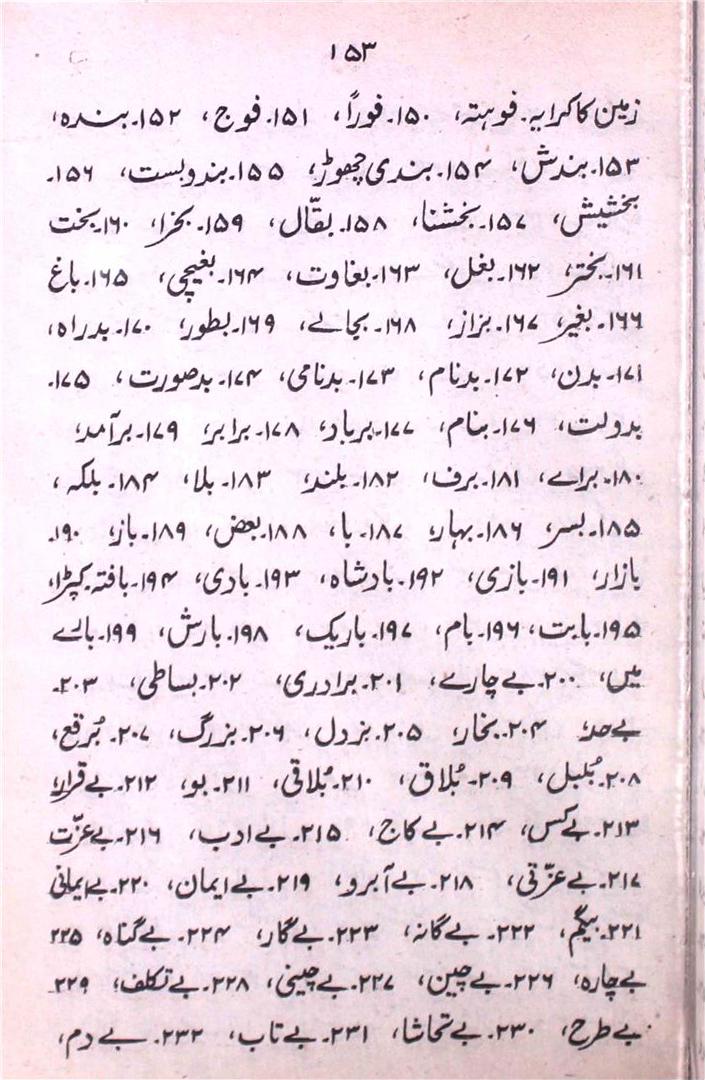 ۱۵۳
زمین کا کرایہ۔ فوہتہ، ۱۵۰۔فوراً، ۱۵۱۔فوج، ۱۵۲۔بندہ،
۱۵۳۔بندش، ۱۵۴۔بندی چھوڑ، ۱۵۵۔بندوبست، ۱۵۶۔
بخشیش، ۱۵۷۔بخشنا، ۱۵۸۔بقّال، ۱۵۹۔بخرا، ۱۶۰۔بخت
۱۶۱۔بختر، ۱۶۲۔بغل، ۱۶۳۔بغاوت، ۱۶۴۔بغیچی، ۱۶۵۔باغ
۱۶۶۔بغیر، ۱۶۷۔بزاز، ۱۶۸۔بجائے، ۱۶۹۔بطور، ۱۷۰۔بدراہ،
۱۷۱۔بدن، ۱۷۲۔بدنام، ۱۷۳۔بدنامی، ۱۷۴۔بدصورت، ۱۷۵۔
بدولت، ۱۷۶۔بنام، ۱۷۷۔برباد، ۱۷۸۔برابر، ۱۷۹۔برآمد،
۱۸۰۔براے، ۱۸۱۔برف، ۱۸۲۔بلند، ۱۸۳۔بلا، ۱۸۴۔بلکہ،
۱۸۵۔بسر، ۱۸۶۔بہار، ۱۸۷۔با، ۱۸۸۔بعض، ۱۸۹۔باز، ۱۹۰۔
بازار، ۱۹۱۔بازی، ۱۹۲۔بادشاہ، ۱۹۳۔بادی، ۱۹۴۔بافتہ۔کپڑا،
۱۹۵۔بابت، ۱۹۶۔بام، ۱۹۷۔باریک، ۱۹۸۔بارش، ۱۹۹۔بارے
میں، ۲۰۰۔بے چارے، ۲۰۱۔برادری، ۲۰۲۔بساطی، ۲۰۳۔
بے حد، ۲۰۴۔بخار، ۲۰۵۔بزدل، ۲۰۶۔بزرگ، ۲۰۷۔بُرقع،
۲۰۸۔بُلبل، ۲۰۹۔بُلاق، ۲۱۰۔بُلاقی، ۲۱۱۔بو، ۲۱۲۔بے قرار،
۲۱۳۔بےکس، ۲۱۴۔بے کاج، ۲۱۵۔بے ادب، ۲۱۶۔بےعزّت
۲۱۷۔بے عزّتی، ۲۱۸۔بےآبرو، ۲۱۹۔بے ایمان، ۲۲۰۔بےایمانی
۲۲۱۔بیگم، ۲۲۲۔بے گانہ، ۲۲۳۔بےگار، ۲۲۴۔بےگناہ، ۲۲۵
بےچارہ، ۲۲۶۔بےچین، ۲۲۷۔بےچینی، ۲۲۸۔بےتکلف، ۲۲۹۔
بے طرح، ۲۳۰۔بے تحاشا، ۲۳۱۔بے تاب، ۲۳۲۔بے دم،